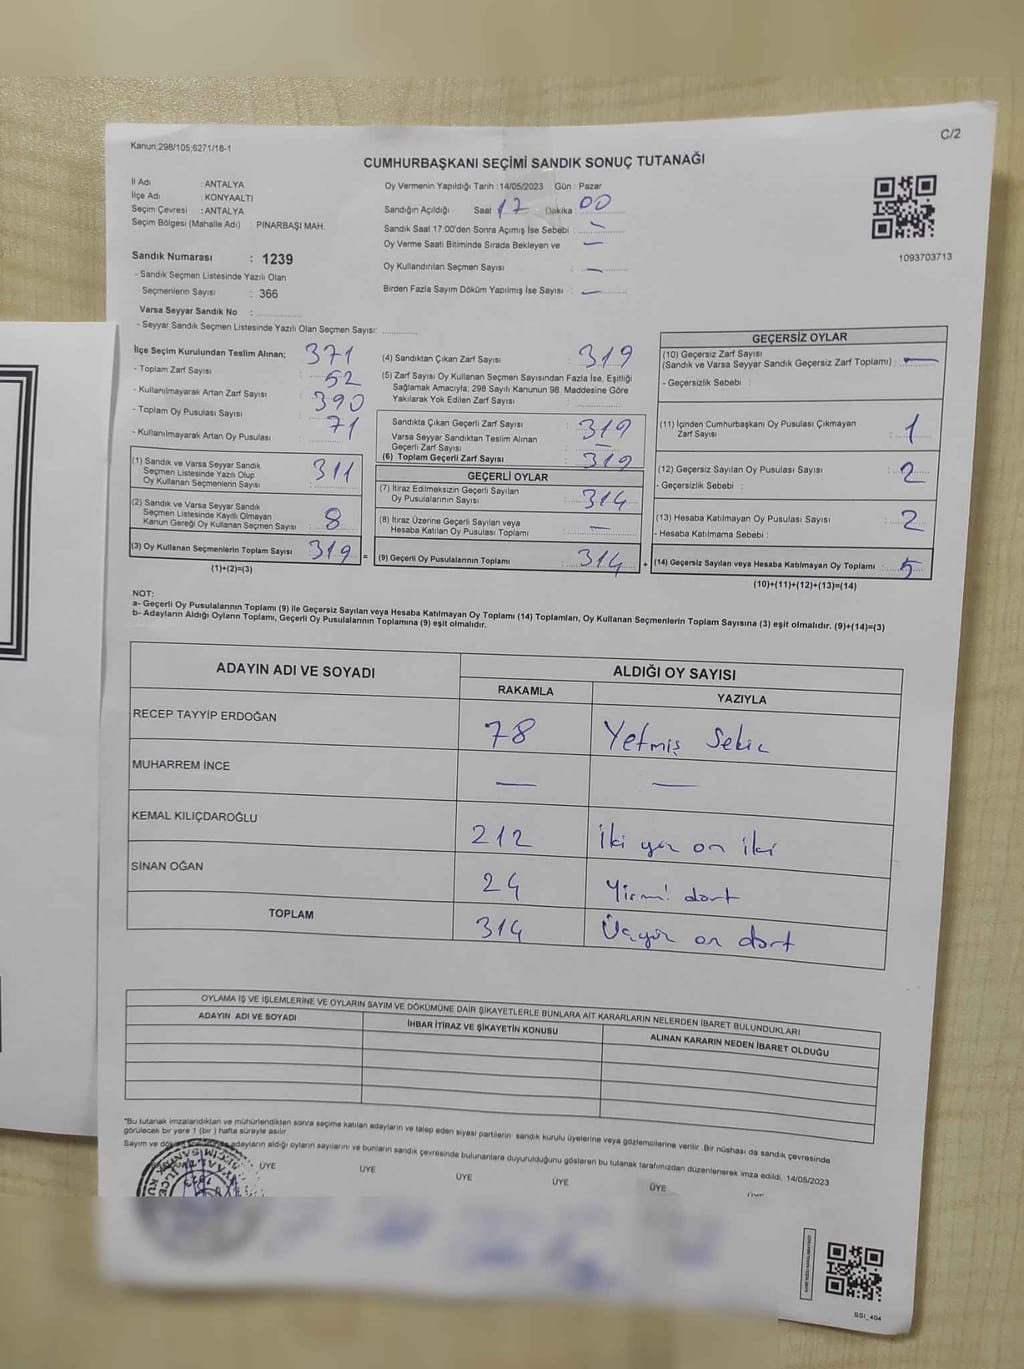 C/2
Kanun;298/105;6271/16-1
CUMHURBAŞKANI SEÇİMİ SANDIK SONUÇ TUTANAĞI
İl Adı : ANTALYA
İlçe Adı : KONYAALTI
Seçim Çevresi : ANTALYA
Seçim Bölgesi (Mahalle Adı) : PINARBAŞI MAH.
Oy Vermenin Yapıldığı Tarih :14/05/2023 Gün : Pazar
Sandığın Açıldığı Saat 17 Dakika 00
Sandık Saat 17:00'den Sonra Açımış İse Sebebi : —
Oy Verme Saati Bitiminde Sırada Bekleyen ve —
Oy Kullandırılan Seçmen Sayısı : —
Birden Fazla Sayım Döküm Yapılmış İse Sayısı : —
1093703713
Sandık Numarası : 1239
- Sandık Seçmen Listesinde Yazılı Olan
Seçmenlerin Sayısı : 366
Varsa Seyyar Sandık No :
- Seyyar Sandık Seçmen Listesinde Yazılı Olan Seçmen Sayısı:
İlçe Seçim Kurulundan Teslim Alınan;
- Toplam Zarf Sayısı 371
- Kullanılmayarak Artan Zarf Sayısı 52
- Toplam Oy Pusulası Sayısı 390
- Kullanılmayarak Artan Oy Pusulası 71
(1) Sandık ve Varsa Seyyar Sandık
Seçmen Listesinde Yazılı Olup
Oy Kullanan Seçmenlerin Sayısı 311
(2) Sandık ve Varsa Seyyar Sandık
Seçmen Listesinde Kayıtlı Olmayan
Kanun Gereği Oy Kullanan Seçmen Sayısı 8
(3) Oy Kullanan Seçmenlerin Toplam Sayısı 319 =
(1)+(2)=(3)
(4) Sandıktan Çıkan Zarf Sayısı : 319
(5) Zarf Sayısı Oy Kullanan Seçmen Sayısından Fazla İse, Eşitliği
Sağlamak Amacıyla, 298 Sayılı Kanunun 98. Maddesine Göre
Yakılarak Yok Edilen Zarf Sayısı :
Sandıkta Çıkan Geçerli Zarf Sayısı : 319
Varsa Seyyar Sandıktan Teslim Alınan
Geçerli Zarf Sayısı : —
(6) Toplam Geçerli Zarf Sayısı : 319
GEÇERLİ OYLAR
(7) İtiraz Edilmeksizin Geçerli Sayılan
Oy Pusulalarının Sayısı : 314
(8) İtiraz Üzerine Geçerli Sayılan veya
Hesaba Katılan Oy Pusulası Toplamı : —
(9) Geçerli Oy Pusulalarının Toplamı : 314 +
GEÇERSİZ OYLAR
(10) Geçersiz Zarf Sayısı
(Sandık ve Varsa Seyyar Sandık Geçersiz Zarf Toplamı) : —
- Geçersizlik Sebebi :
(11) İçinden Cumhurbaşkanı Oy Pusulası Çıkmayan
Zarf Sayısı : 1
(12) Geçersiz Sayılan Oy Pusulası Sayısı : 2
- Geçersizlik Sebebi :
(13) Hesaba Katılmayan Oy Pusulası Sayısı : 2
- Hesaba Katılmama Sebebi :
(14) Geçersiz Sayılan veya Hesaba Katılmayan Oy Toplamı : 5
(10)+(11)+(12)+(13)=(14)
NOT:
a- Geçerli Oy Pusulalarının Toplamı (9) ile Geçersiz Sayılan veya Hesaba Katılmayan Oy Toplamı (14) Toplamları, Oy Kullanan Seçmenlerin Toplam Sayısına (3) eşit olmalıdır. (9)+(14)=(3)
b- Adayların Aldığı Oyların Toplamı, Geçerli Oy Pusulalarının Toplamına (9) eşit olmalıdır.
ADAYIN ADI VE SOYADI ALDIĞI OY SAYISI
RAKAMLA YAZIYLA
RECEP TAYYİP ERDOĞAN 78 Yetmiş Sekiz
MUHARREM İNCE — —
KEMAL KILIÇDAROĞLU 212 İki yüz on iki
SİNAN OĞAN 24 Yirmi dört
TOPLAM 314 Üçyüz on dört
OYLAMA İŞ VE İŞLEMLERİNE VE OYLARIN SAYIM VE DÖKÜMÜNE DAİR ŞİKAYETLERLE BUNLARA AİT KARARLARIN NELERDEN İBARET BULUNDUKLARI
ADAYIN ADI VE SOYADI İHBAR İTİRAZ VE ŞİKAYETİN KONUSU ALINAN KARARIN NEDEN İBARET OLDUĞU
*Bu tutanak imzalandıktan ve mühürlendikten sonra seçime katılan adayların ve talep eden siyasi partilerin sandık kurulu üyelerine veya gözlemcilerine verilir. Bir nüshası da sandık çevresinde
görülecek bir yere 1 (bir) hafta süreyle asılır.
Sayım ve adayların aldığı oyların sayılarını ve bunların sandık çevresinde bulunanlara duyurulduğunu gösteren bu tutanak tarafımızdan düzenlenerek imza edildi. 14/05/2023
ÜYE ÜYE ÜYE ÜYE ÜYE
BSI_404